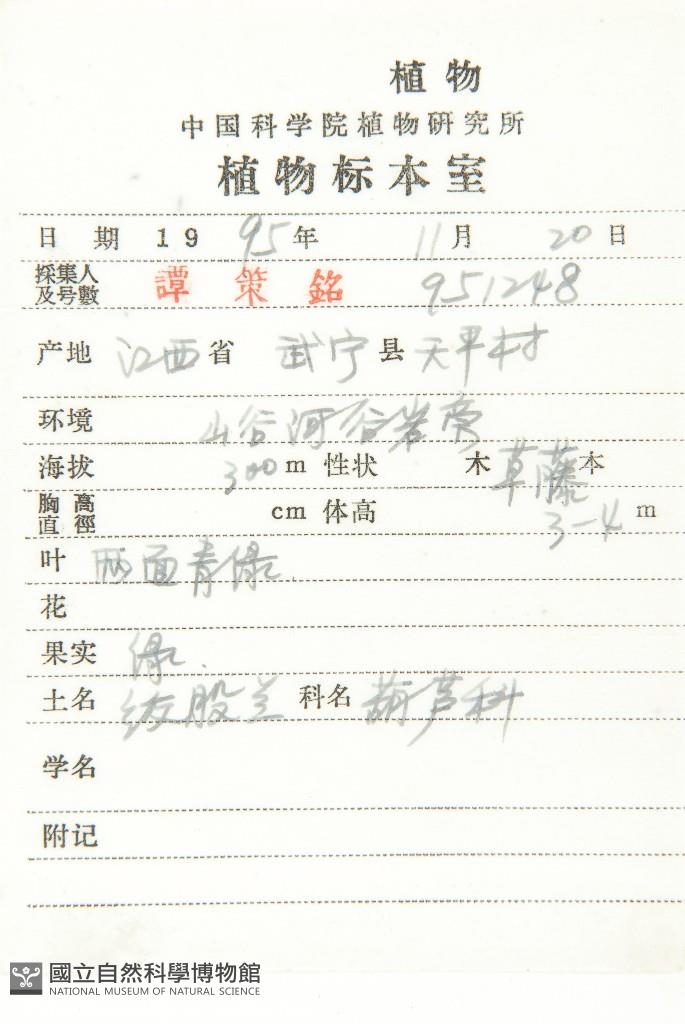 植物
中国科学院植物研究所
植物标本室
日期 19 95年 11月 20日
採集人
及号數 譚策銘 951248
产地 江西省 武宁县 天平村
环境 山谷河谷岩旁
海拔 300 m 性状 木 草藤 本
胸高
直徑 cm 体高 3-4 m
叶 两面青绿.
花
果实 绿.
土名 绞股兰 科名 葫芦科
学名
附记
國立自然科學博物館
NATIONAL MUSEUM OF NATURAL SCIENCE